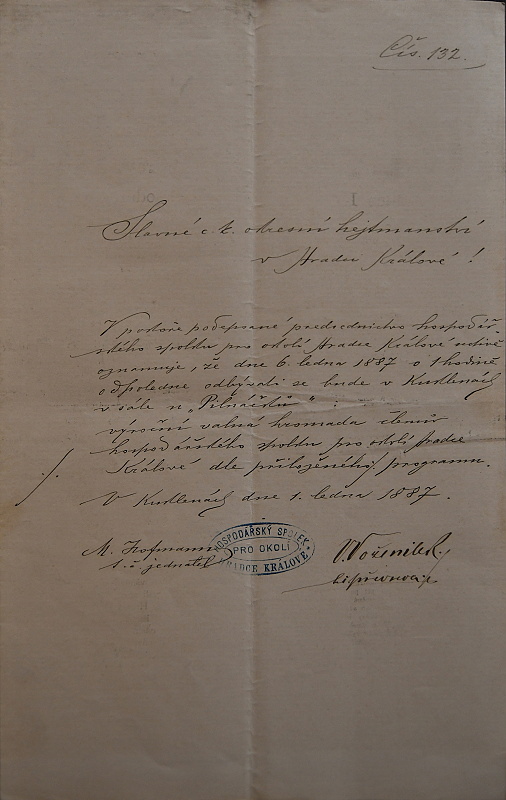 Čís. 132.
Slavné c. k. okresní hejtmanství
v Hradci Králové!
V pokoře podepsané předsednictvo hospodář-
ského spolku pro okolí Hradce Králové uctivě
oznamuje, že dne 6. ledna 1887 o 1 hodině
odpoledne odbývati se bude v Kuklenách
v sále u „Pilnáčků“
výroční valná hromada členů
hospodářského spolku pro okolí Hradce
Králové dle přiloženého programu.
V Kuklenách dne 1. ledna 1887.
M. Hofmann
t. č. jednatel
HOSPODÁŘSKÝ SPOLEK
PRO OKOLÍ
HRADCE KRÁLOVÉ.
V. Voženílek